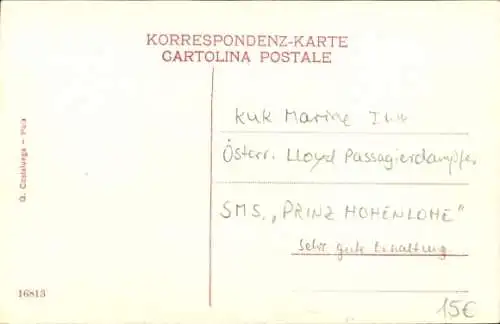 KORRESPONDENZ-KARTE
CARTOLINA POSTALE
KuK Marine
Österr. Lloyd Passagierdampfer
SMS. „PRINZ HOHENLOHE"
Sehr gute Erhaltung
G. Costalunga – Pola
16813
15€